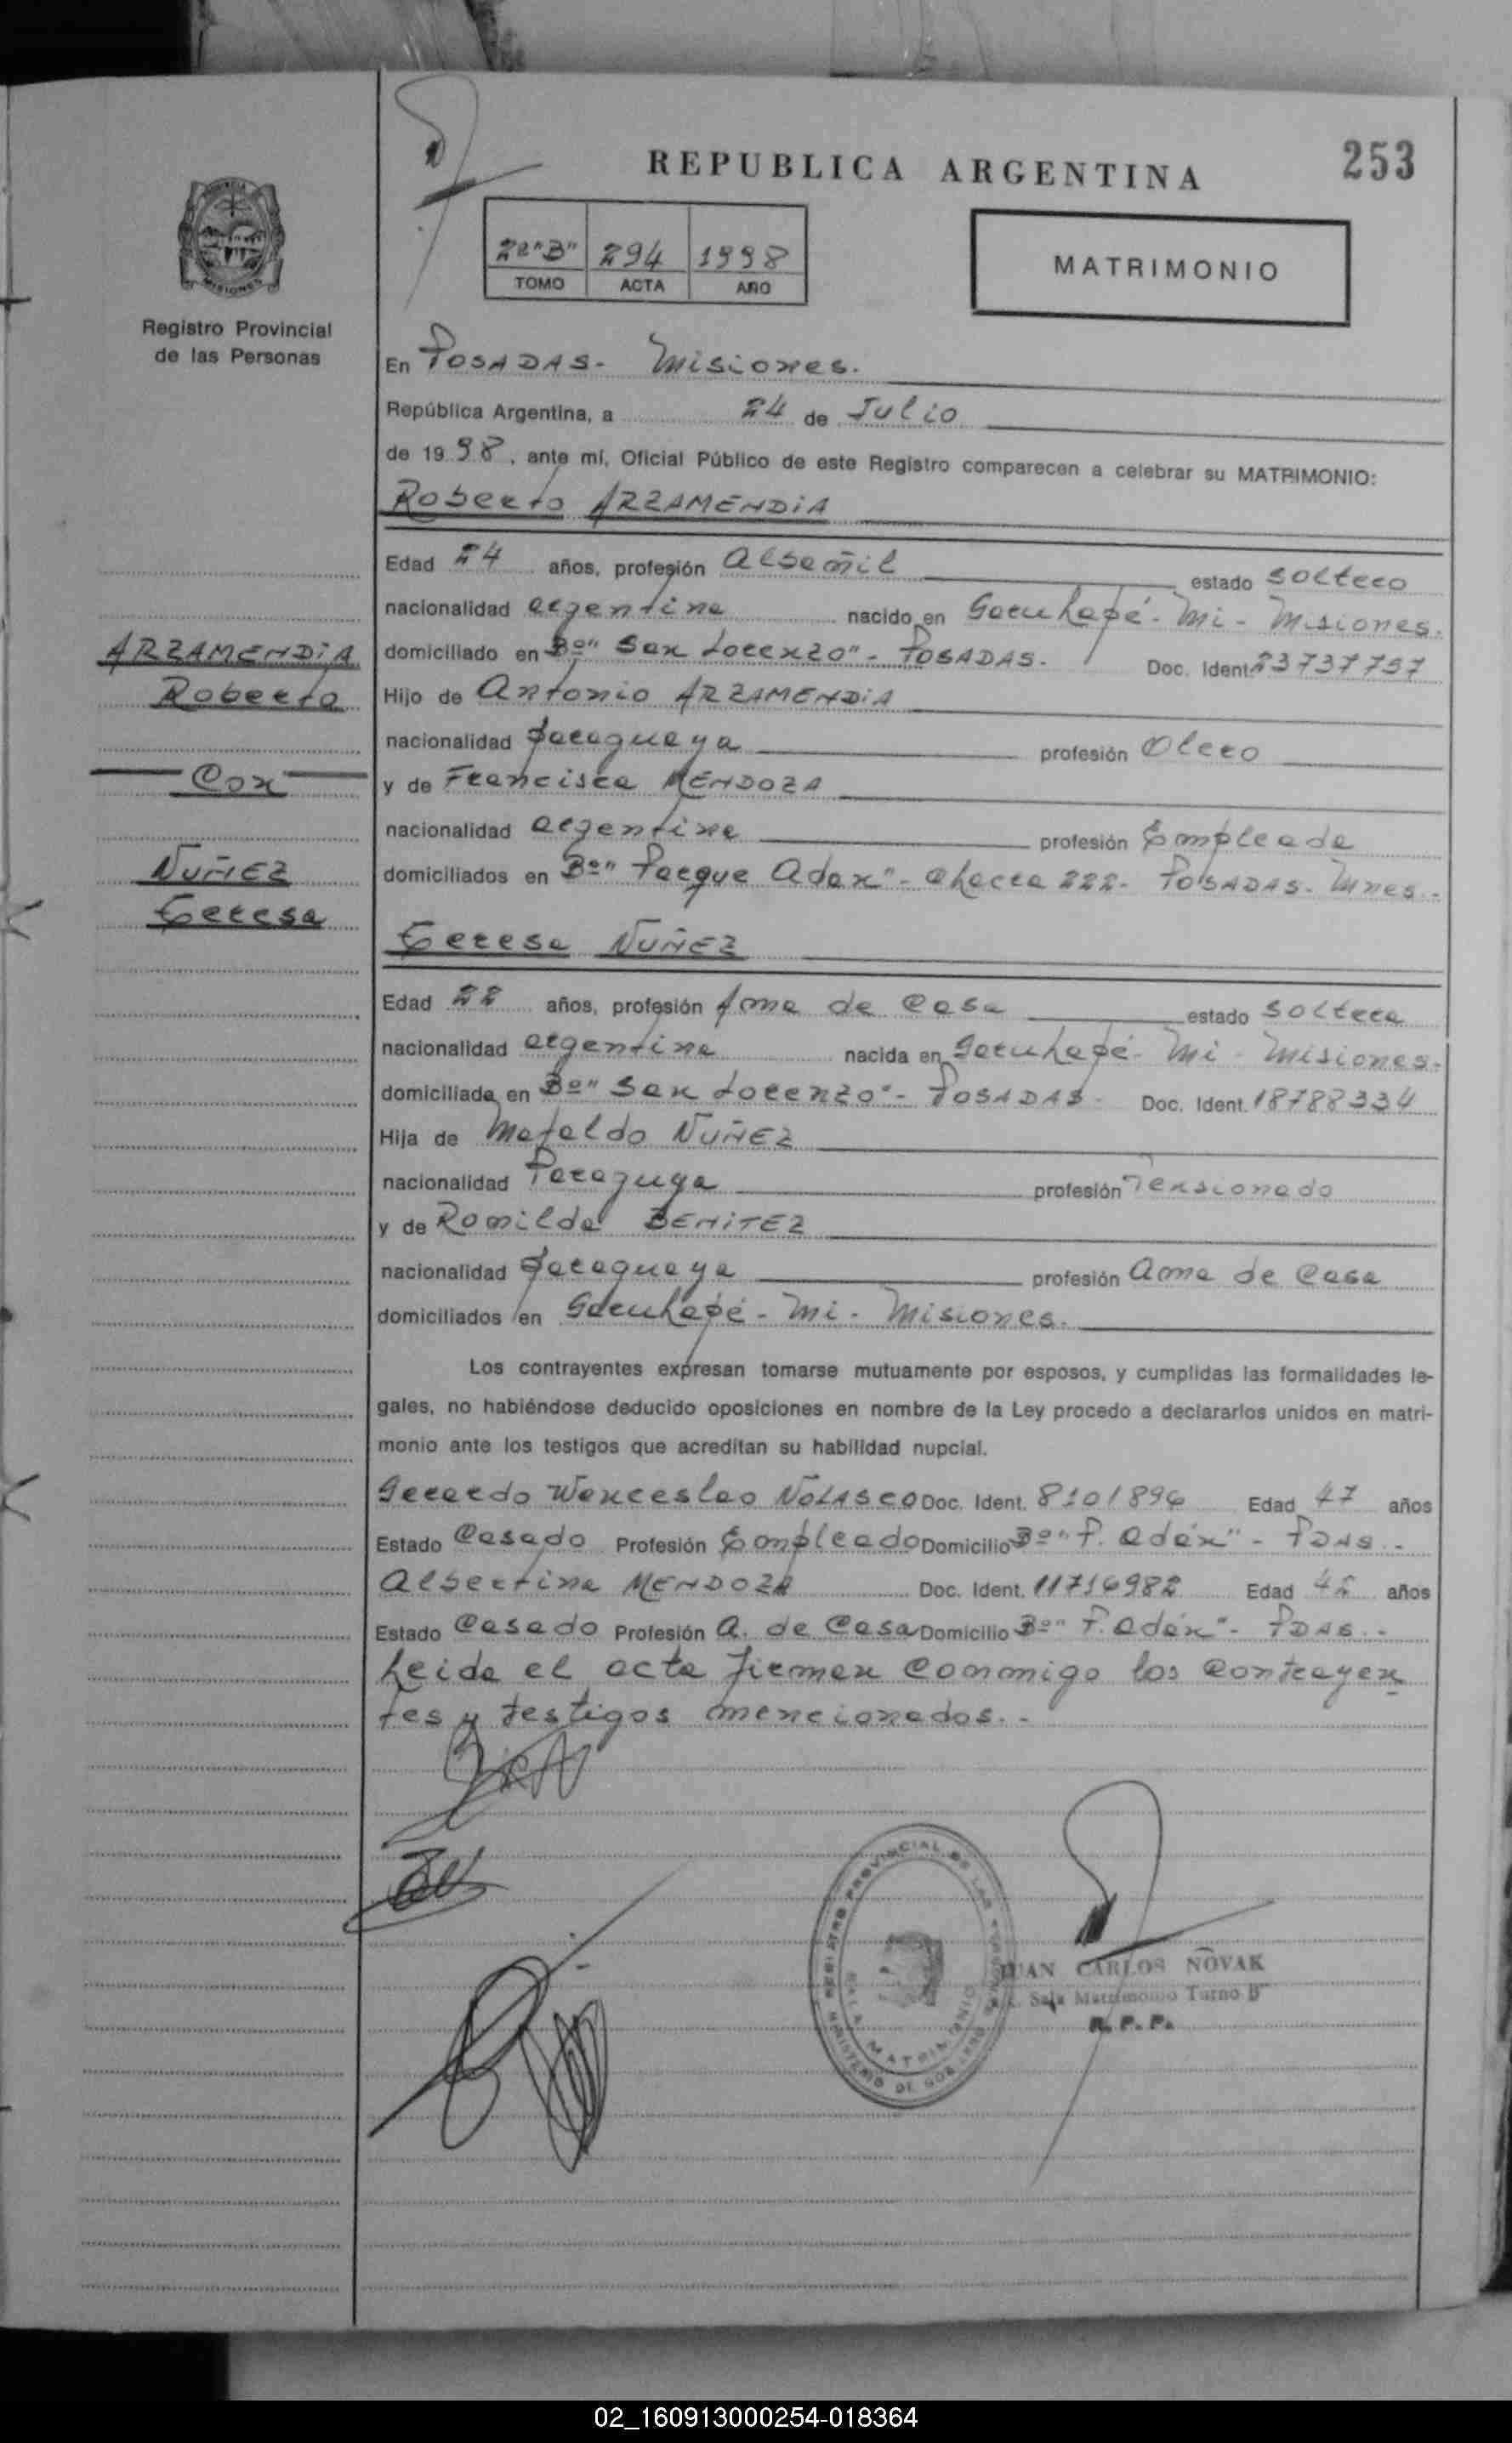 253
REPUBLICA ARGENTINA
2º "B" 294 1998
TOMO ACTA AÑO
MATRIMONIO
Registro Provincial
de las Personas
En POSADAS - Misiones.
República Argentina, a 24 de Julio
de 1998, ante mí, Oficial Público de este Registro comparecen a celebrar su MATRIMONIO:
Roberto ARZAMENDIA
Edad 24 años, profesión Albañil estado soltero
nacionalidad argentina nacido en Garuhapé - Mi - Misiones.
domiciliado en Bº "San Lorenzo" - POSADAS. Doc. Ident. 23737757
Hijo de Antonio ARZAMENDIA
nacionalidad paraguaya profesión Olero
y de Francisca MENDOZA
nacionalidad argentina profesión Empleada
domiciliados en Bº "Parque Adan" - Chacra 222 - POSADAS. Mnes.-
ARZAMENDIA
Roberto
Con
NUÑEZ
Teresa
Teresa NUÑEZ
Edad 22 años, profesión Ama de Casa estado soltera
nacionalidad argentina nacida en Garuhapé - Mi - Misiones.
domiciliada en Bº "San Lorenzo" - POSADAS. Doc. Ident. 18788334
Hija de Mafaldo NUÑEZ
nacionalidad Paraguya profesión Pensionado
y de Romilda BENITEZ
nacionalidad paraguaya profesión Ama de Casa
domiciliados en Garuhapé - Mi - Misiones.
Los contrayentes expresan tomarse mutuamente por esposos, y cumplidas las formalidades le-
gales, no habiéndose deducido oposiciones en nombre de la Ley procedo a declararlos unidos en matri-
monio ante los testigos que acreditan su habilidad nupcial.
Gerardo Wenceslao NOLASCO Doc. Ident. 8101896 Edad 47 años
Estado Casado Profesión Empleado Domicilio Bº "P. Adán" - PDAS.-
Albertina MENDOZA Doc. Ident. 11716982 Edad años
Estado Casado Profesión A. de Casa Domicilio Bº "P. Adán" - PDAS.-
Leida el acta firman conmigo los contrayen
tes y testigos mencionados.-
REGISTRO PROVINCIAL DE LAS PERSONAS
SALA MATRIMONIO
MINISTERIO DE GOBIERNO
JUAN CARLOS NOVAK
Sala Matrimonio Turno B
R. P. P.
02_160913000254-018364